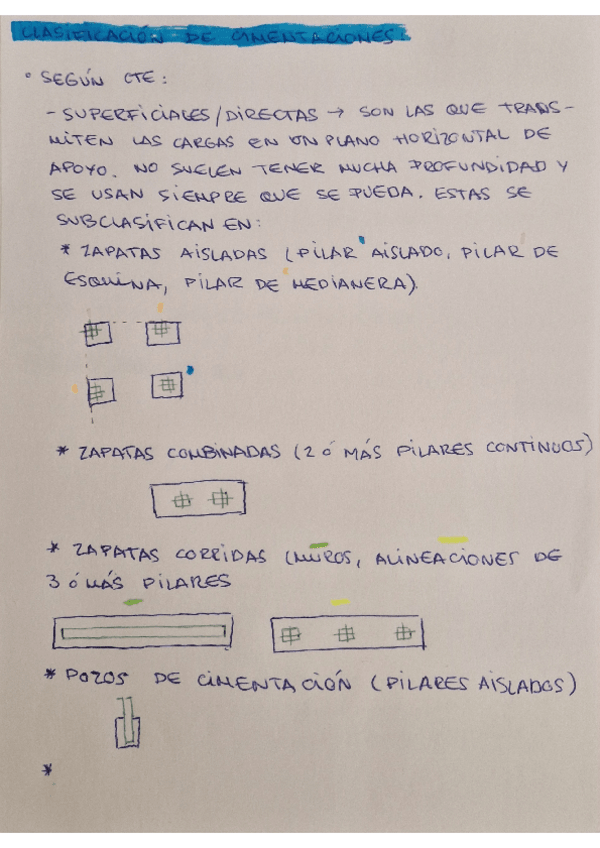 CLASIFICACIÓN DE CIMENTACIONES:
° SEGÚN CTE:
- SUPERFICIALES/DIRECTAS → SON LAS QUE TRANS-
MITEN LAS CARGAS EN UN PLANO HORIZONTAL DE
APOYO. NO SUELEN TENER MUCHA PROFUNDIDAD Y
SE USAN SIEMPRE QUE SE PUEDA. ESTAS SE
SUBCLASIFICAN EN:
* ZAPATAS AISLADAS (PILAR AISLADO, PILAR DE
ESQUINA, PILAR DE MEDIANERA).
* ZAPATAS COMBINADAS (2 Ó MÁS PILARES CONTINUOS)
* ZAPATAS CORRIDAS (MUROS, ALINEACIONES DE
3 Ó MÁS PILARES
* POZOS DE CIMENTACIÓN (PILARES AISLADOS)
*